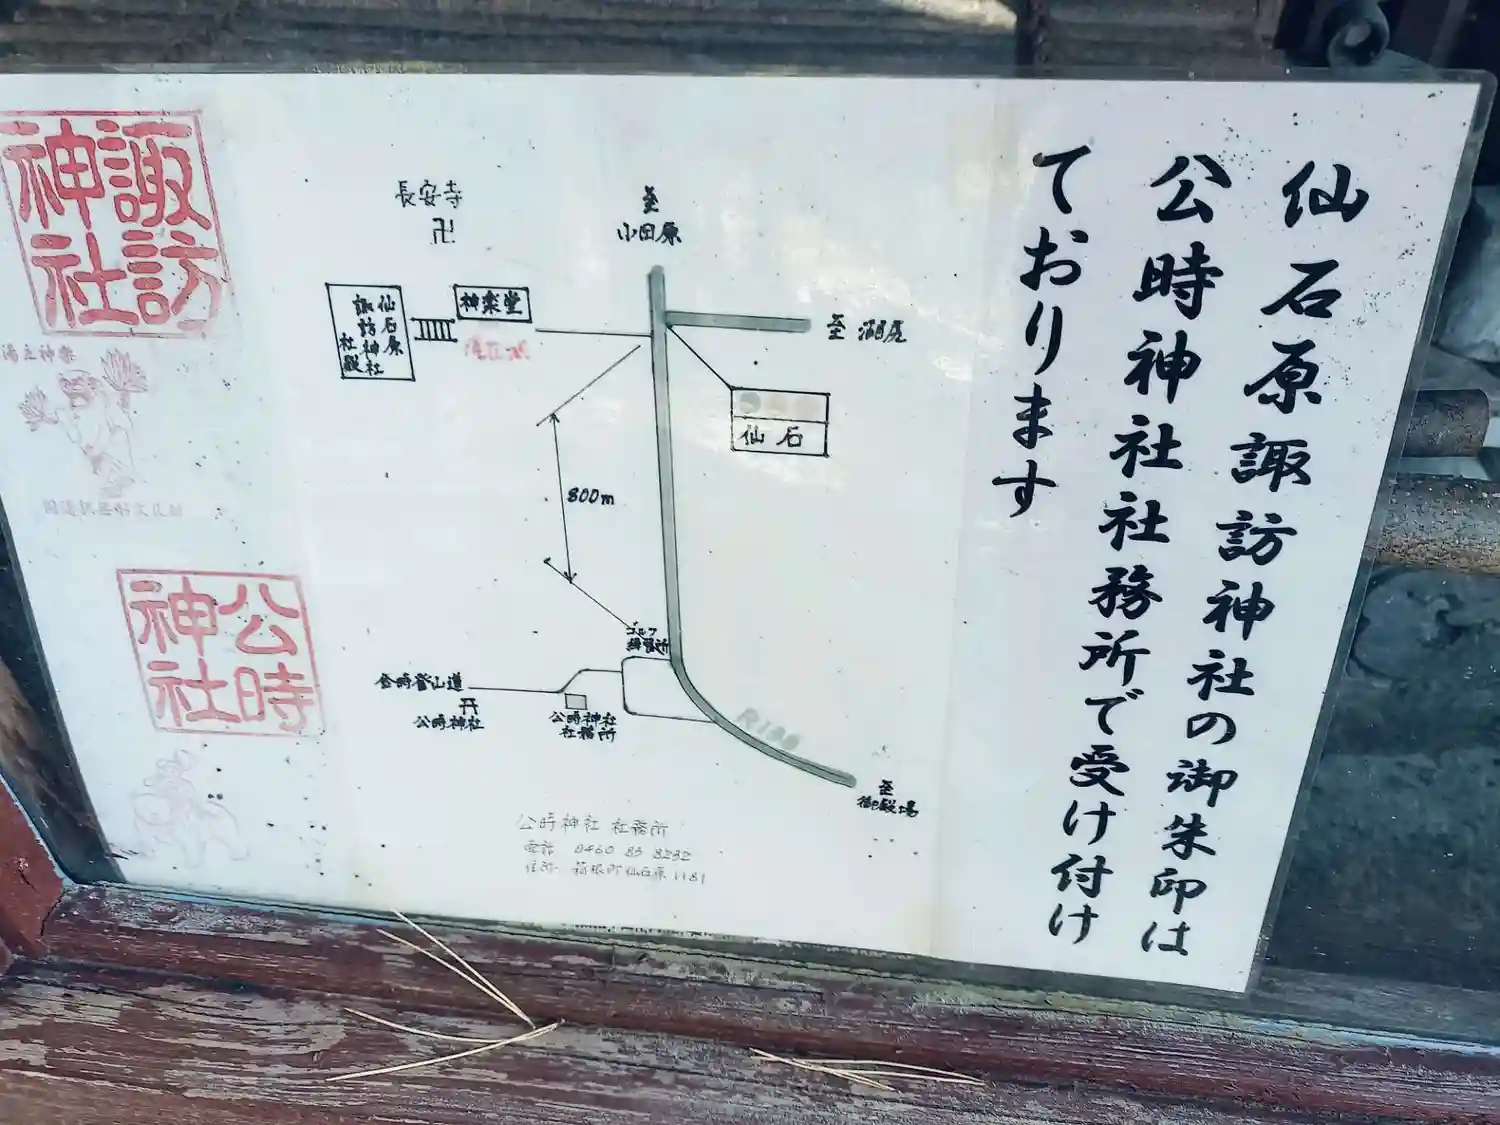 仙石原諏訪神社の御朱印は
公時神社社務所で受け付け
ております
諏訪
神社
湯立神楽
公時
神社
長安寺
卍
至
小田原
仙石原
諏訪神社
社殿
神楽堂
現在地
至 湖尻
仙石
800m
ゴルフ
練習所
金時登山道
公時神社
公時神社
社務所
R138
至
御殿場
公時神社 社務所
電話 0460 83 8232
住所 箱根町仙石原1181